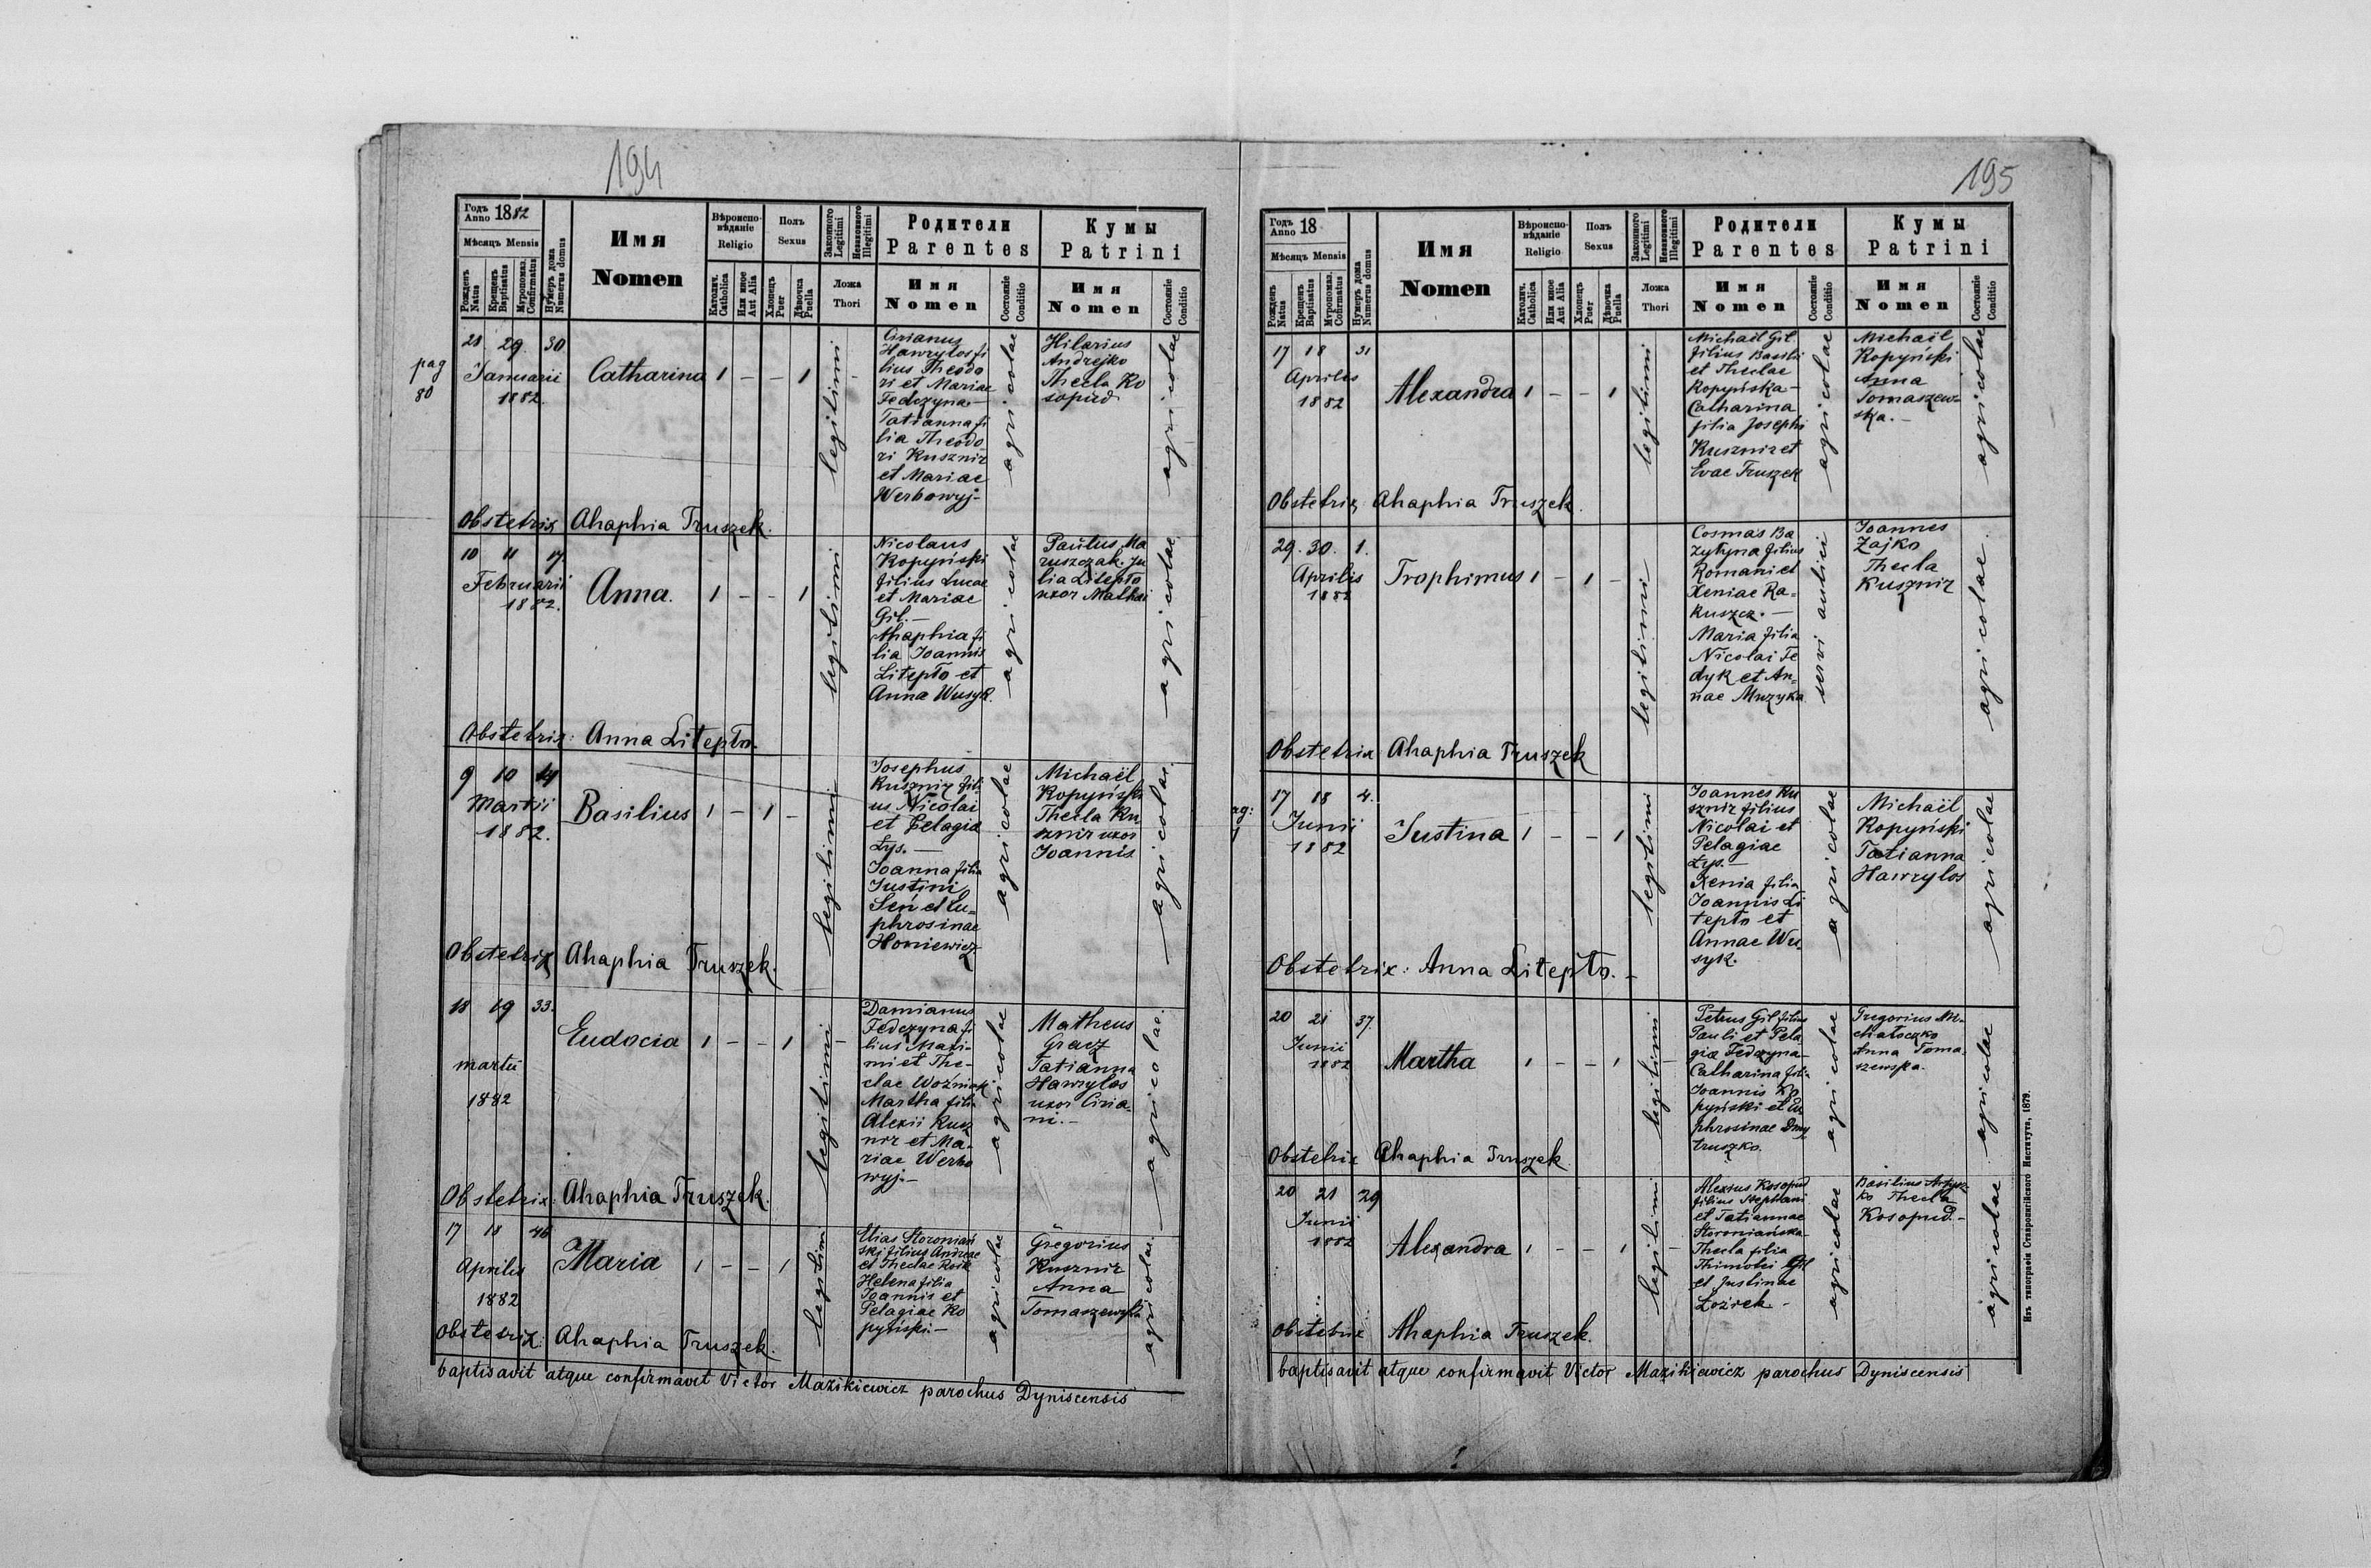 194
Годъ Anno 1882
Мѣсяцъ Mensis
Рожденъ Natus
Крещенъ Baptisatus
Мѵропомаз. Confirmatus
Нумеръ дома Numerus domus
Имя
Nomen
Вѣроиспо-
вѣданіе
Religio
Католич. Catholica
Или иное Aut Alia
Полъ
Sexus
Хлопецъ Puer
Дѣвочка Puella
Законного Legitimi
Незаконного Illegitimi
Ложа
Thori
Родители
Parentes
Имя
Nomen
Состояніе Conditio
Кумы
Patrini
Имя
Nomen
Состояніе Conditio
pag
80
28 29. 30
Januarii
1882.
Catharina 1 – – 1
legitimi
Cirianus
Hawrylos fi
lius Theodo
ri et Mariae
Fedczyna.–
Tatianna fi
lia Theodo
ri Kusznir
et Mariae
Werbowyj–
agricolae
Hilarius
Andrejko
Thecla Ko
sopud
agricolae
Obstetrix Ahaphia Truszek.
10 11 17.
Februarii
1882.
Anna. 1 – – 1
legitimi
Nicolaus
Kopyński
filius Lucae
et Mariae
Gil.–
Ahaphia fi
lia Joannis
Litepło et
Anna Wusyk.
agricolae
Paulus Ma
ruszczak. Ju
lia Litepło
uxor Mathei
agricolae
Obstetrix: Anna Litepło.
9 10 14
Martii
1882.
Basilius 1 – 1 –
legitimi
Josephus
Kusznir fili
us Nicolai
et Pelagia
Łys.–
Joanna filia
Justini
Seń et Eu=
phrosinae
Honiewicz
agricolae
Michaël
Kopyński
Thecla Ku
sznir uxor
Joannis
agricolae
Obstetrix Ahaphia Truszek.
18 19 33.
martii
1882
Eudocia 1 – – 1
legitimi
Damianus
Fedczyna fi
lius Maxi-
mi et The-
clae Woźniak
Martha fili
Alexii Kusz
nir et Ma-
riae Werbo
wyj.–
agricolae
Matheus
Gracz
Tatianna
Hawrylos
uxor Ciria-
ni.–
agricolae
Obstetrix: Ahaphia Truszek.
17 18 46
Aprilis
1882
Maria 1 – – 1
legitimi
Elias Storoniań
ski filius Andreae
et Theclae
Helena filia
Joannis et
Pelagiae Ko
pyński.–
agricolae
Gregorius
Kusznir
Anna
Tomaszewska
agricolae
Obstetrix: Ahaphia Truszek.
baptisavit atque confirmavit Victor Mazikiewicz parochus Dyniscensis
195
Годъ Anno 18
Мѣсяцъ Mensis
Рожденъ Natus
Крещенъ Baptisatus
Мѵропомаз. Confirmatus
Нумеръ дома Numerus domus
Имя
Nomen
Вѣроиспо-
вѣданіе
Religio
Католич. Catholica
Или иное Aut Alia
Полъ
Sexus
Хлопецъ Puer
Дѣвочка Puella
Законного Legitimi
Незаконного Illegitimi
Ложа
Thori
Родители
Parentes
Имя
Nomen
Состояніе Conditio
Кумы
Patrini
Имя
Nomen
Состояніе Conditio
17 18 31
Aprilis
1882
Alexandra 1 – – 1
legitimi
Michaël Gil
filius Basilii
et Theclae
Kopyńska–
Catharina
filia Josephi
Kusznir et
Evae Truszek
agricolae
Michaël
Kopyński
Anna
Tomaszew-
ska.–
agricolae
Obstetrix Ahaphia Truszek.
29. 30. 1.
Aprilis
1882
Trophimus 1 – 1 –
legitimi
Cosmas Ba
zylyna filius
Romani et
Xeniae Ra=
kuszcz.–
Maria filia
Nicolai Fe
dyk et An-
nae Muzyka
servi aulici
Joannes
Zajko
Thecla
Kusznir
agricolae
Obstetrix Ahaphia Truszek
17 18 4.
Junii
1882
Justina 1 – – 1
legitimi
Joannes Ku
sznir filius
Nicolai et
Pelagiae
Łys.–
Xenia filia
Joannis Li
tepło et
Annae Wu-
syk.
agricolae
Michaël
Kopyński
Tatianna
Hawrylos
agricolae
Obstetrix: Anna Litepło.–
20 21 37.
Junii
1882
Martha 1 – – 1
legitimi
Petrus Gil filius
Pauli et Pela
giae Fedczyna–
Catharina filia
Joannis Ko
pyński et Eu
phrosinae Dmy
truszko.
agricolae
Gregorius Mi-
chałoczko
Anna Toma
szewska.
agricolae
Obstetrix Ahaphia Truszek
20 21 29
Junii
1882
Alexandra 1 – – 1
legitimi
Alexius Kosopud
filius Stephani
et Tatiannae
Storoniańska–
Thecla filia
Thimotei Gil
et Justinae
Łozrek.–
agricolae
Basilius
ko Thecla
Kosopud.–
agricolae
Obstetrix Ahaphia Truszek.
baptisavit atque confirmavit Victor Mazikiewicz parochus Dyniscensis
Изъ типографіи Ставропигійского Института, 1879.